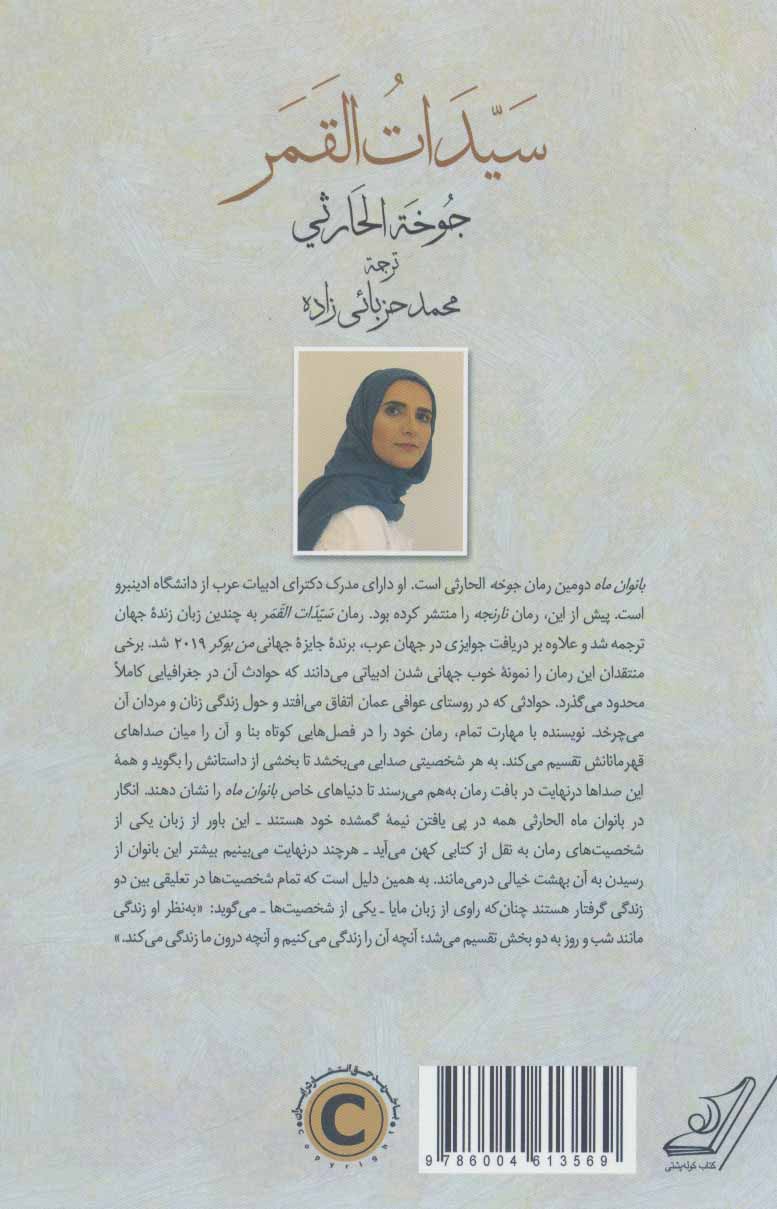 سَیِّدَاتُ القَمَر
جُوخَة الحَارثي
ترجمة
محمد حزبائی زاده
بانوان ماه دومین رمان جوخه الحارثی است. او دارای مدرک دکترای ادبیات عرب از دانشگاه ادینبرو
است. پیش از این، رمان نارنجه را منتشر کرده بود. رمان سَیّدَات القَمَر به چندین زبان زندهٔ جهان
ترجمه شد و علاوه بر دریافت جوایزی در جهان عرب، برندهٔ جایزهٔ جهانی من بوکر ۲۰۱۹ شد. برخی
منتقدان این رمان را نمونهٔ خوب جهانی شدن ادبیاتی می‌دانند که حوادث آن در جغرافیایی کاملاً
محدود می‌گذرد. حوادثی که در روستای عوافی عمان اتفاق می‌افتد و حول زندگی زنان و مردان آن
می‌چرخد. نویسنده با مهارت تمام، رمان خود را در فصل‌هایی کوتاه بنا و آن را میان صداهای
قهرمانانش تقسیم می‌کند. به هر شخصیتی صدایی می‌بخشد تا بخشی از داستانش را بگوید و همهٔ
این صداها درنهایت در بافت رمان به‌هم می‌رسند تا دنیاهای خاص بانوان ماه را نشان دهند. انگار
در بانوان ماه الحارثی همه در پی یافتن نیمهٔ گمشده خود هستند ـ این باور از زبان یکی از
شخصیت‌های رمان به نقل از کتابی کهن می‌آید ـ هرچند درنهایت می‌بینیم بیشتر این بانوان از
رسیدن به آن بهشت خیالی درمی‌مانند. به همین دلیل است که تمام شخصیت‌ها در تعلیقی بین دو
زندگی گرفتار هستند چنان‌که راوی از زبان مایا ـ یکی از شخصیت‌ها ـ می‌گوید: «به‌نظر او زندگی
مانند شب و روز به دو بخش تقسیم می‌شد؛ آنچه آن را زندگی می‌کنیم و آنچه درون ما زندگی می‌کند.»
با خرید حق انتشار در ایران
C
copyright
9 786004 613569
کتاب کوله‌پشتی